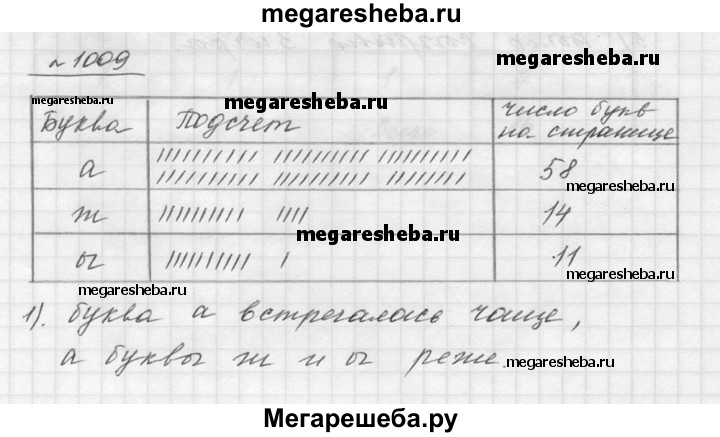 megaresheba.ru
№ 1009
megaresheba.ru
megaresheba.ru
megaresheba.ru
Буква Подсчет число букв на странице
а ////////// ////////// ////////// 58
////////// ////////// ////////
megaresheba.ru
ж ////////// //// 14
megaresheba.ru
ы ////////// / 11
megaresheba.ru
megaresheba.ru
1). буква а встречалась чаще,
а буквы ж и ы реже.
megaresheba.ru
Мегарешеба.ру